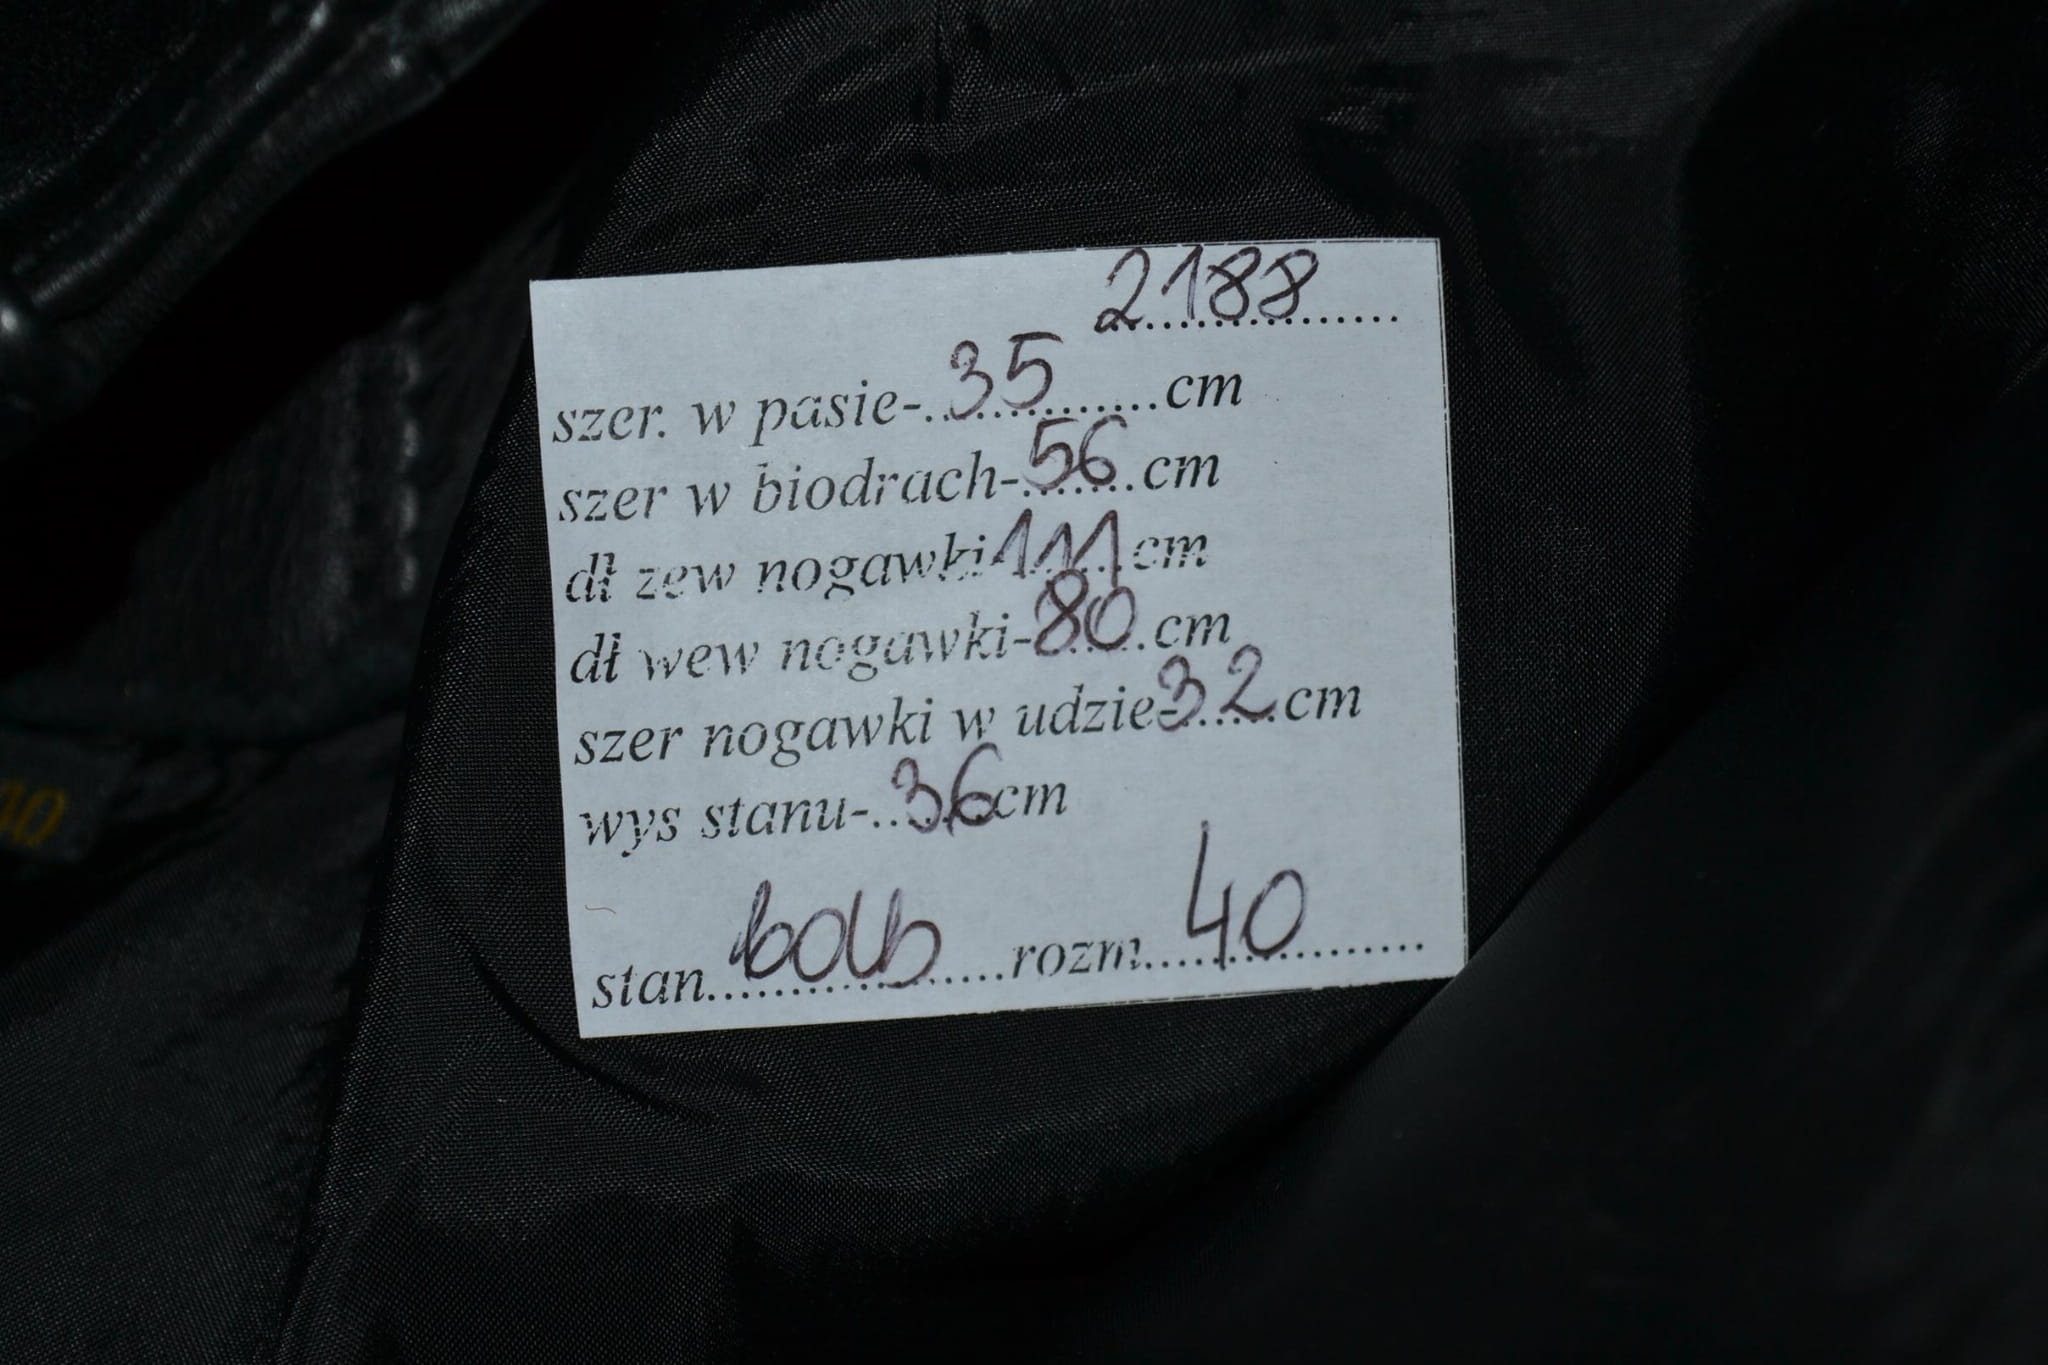 2188
szer. w pasie-..35.......cm
szer w biodrach-56.cm
dł zew nogawki 111 cm
dł wew nogawki-80.cm
szer nogawki w udzie-32cm
wys stanu-..36cm
stan.............rozm...40........
40